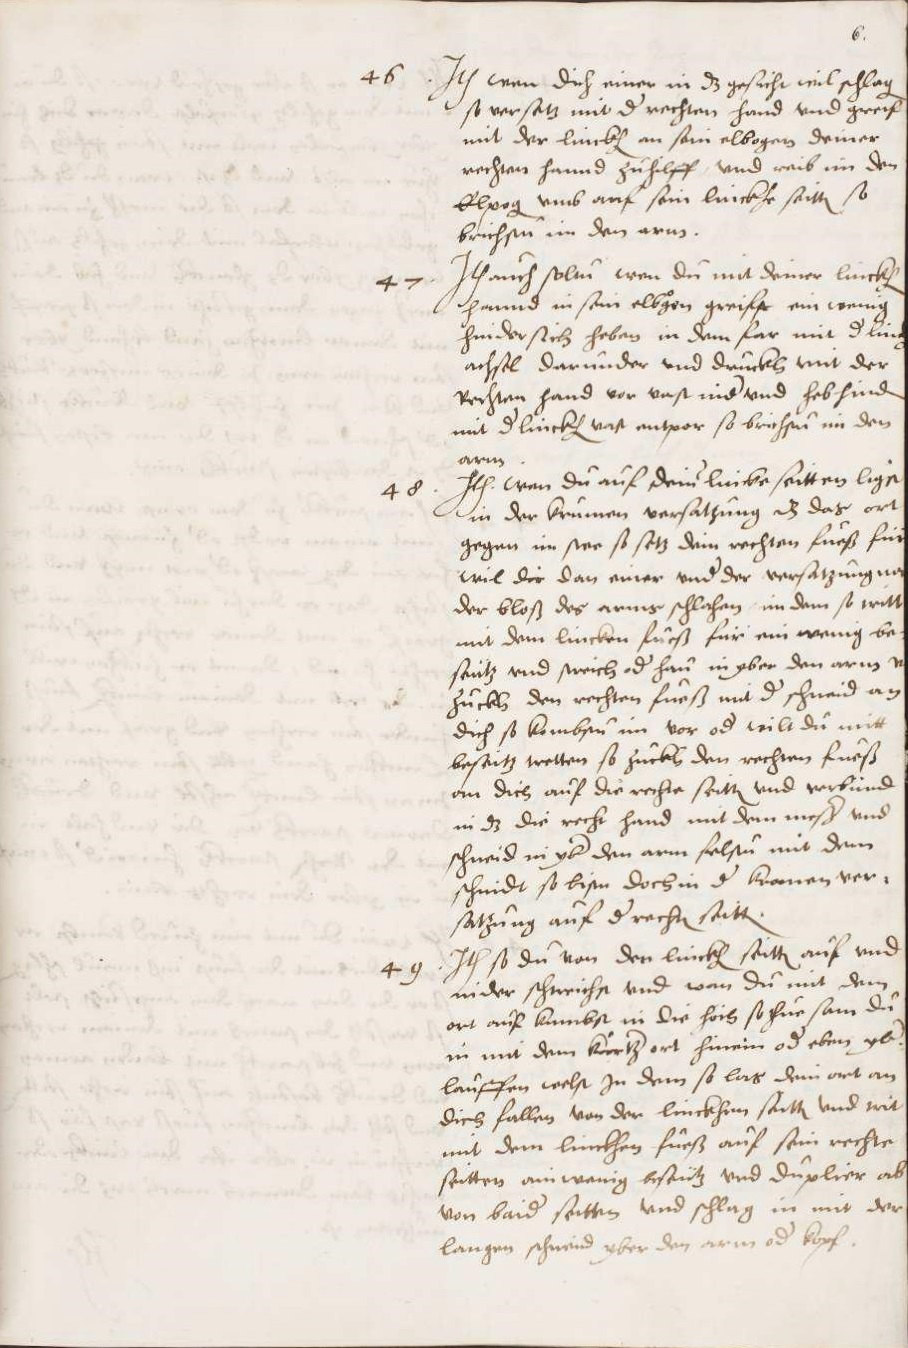 6.
46 . Ith wen dich einer in dz gesicht wil schlag
so versetz mit d rechten hand vnd greif
mit der linckh an sein elbogen deiner
rechten hannd zu hilff vnd reib im den
Elpog vmb auf sein linckhe seitt so
brichstu im den arm .
47 . Ith auch soltu wen du mit deiner linckh
hannd in sein elbogen greiffst ein wenig
hindersich heben in dem far mit d linck
achsel darunder vnd druckh mit der
Rechten hand vor vast nider vnd heb hind
mit d linckh vast entpor so brichstu im den
arm .
48 . Ith . wen du auf deiner lincke seitten ligst
in der krumen versatzung dz das ort
gegen im stee so setz dein rechten fueß für
wil dir dan einer vnder der versatzung
der bloß des arms schlahen in dem so tritt
mit dem lincken fueß für ein wenig be-
seitz vnd streich od hau in yber den arm
zuckh den rechten fueß mit d schneid an
dich so kombstu im vor od wilt du nitt
beseitz tretten so zuckh den rechten fueß
an dich auf die rechte seitt vnd verbind
in dz die recht hand mit dem messer vnd
schneid in yber den arm felstu mit dem
schnidt so bistu doch in d kromen ver-
satzung auf d rechten seitt .
49 . Ith so du von den linckh seitt auf vnd
nider streichst vnd wan du mit dem
ort auf kumbst in die höch so thue sam du
in mit dem kurtz ort hinein od eben yber
lauffen welst In dem so las dein ort an
dich fallen von der linckhen seitt vnd trit
mit dem linckhen fueß auf sein rechte
seitten ain wenig beseitz vnd duplier ab
von baider seitten vnd schlag in mit der
langen schneid yber den arm od kopf .